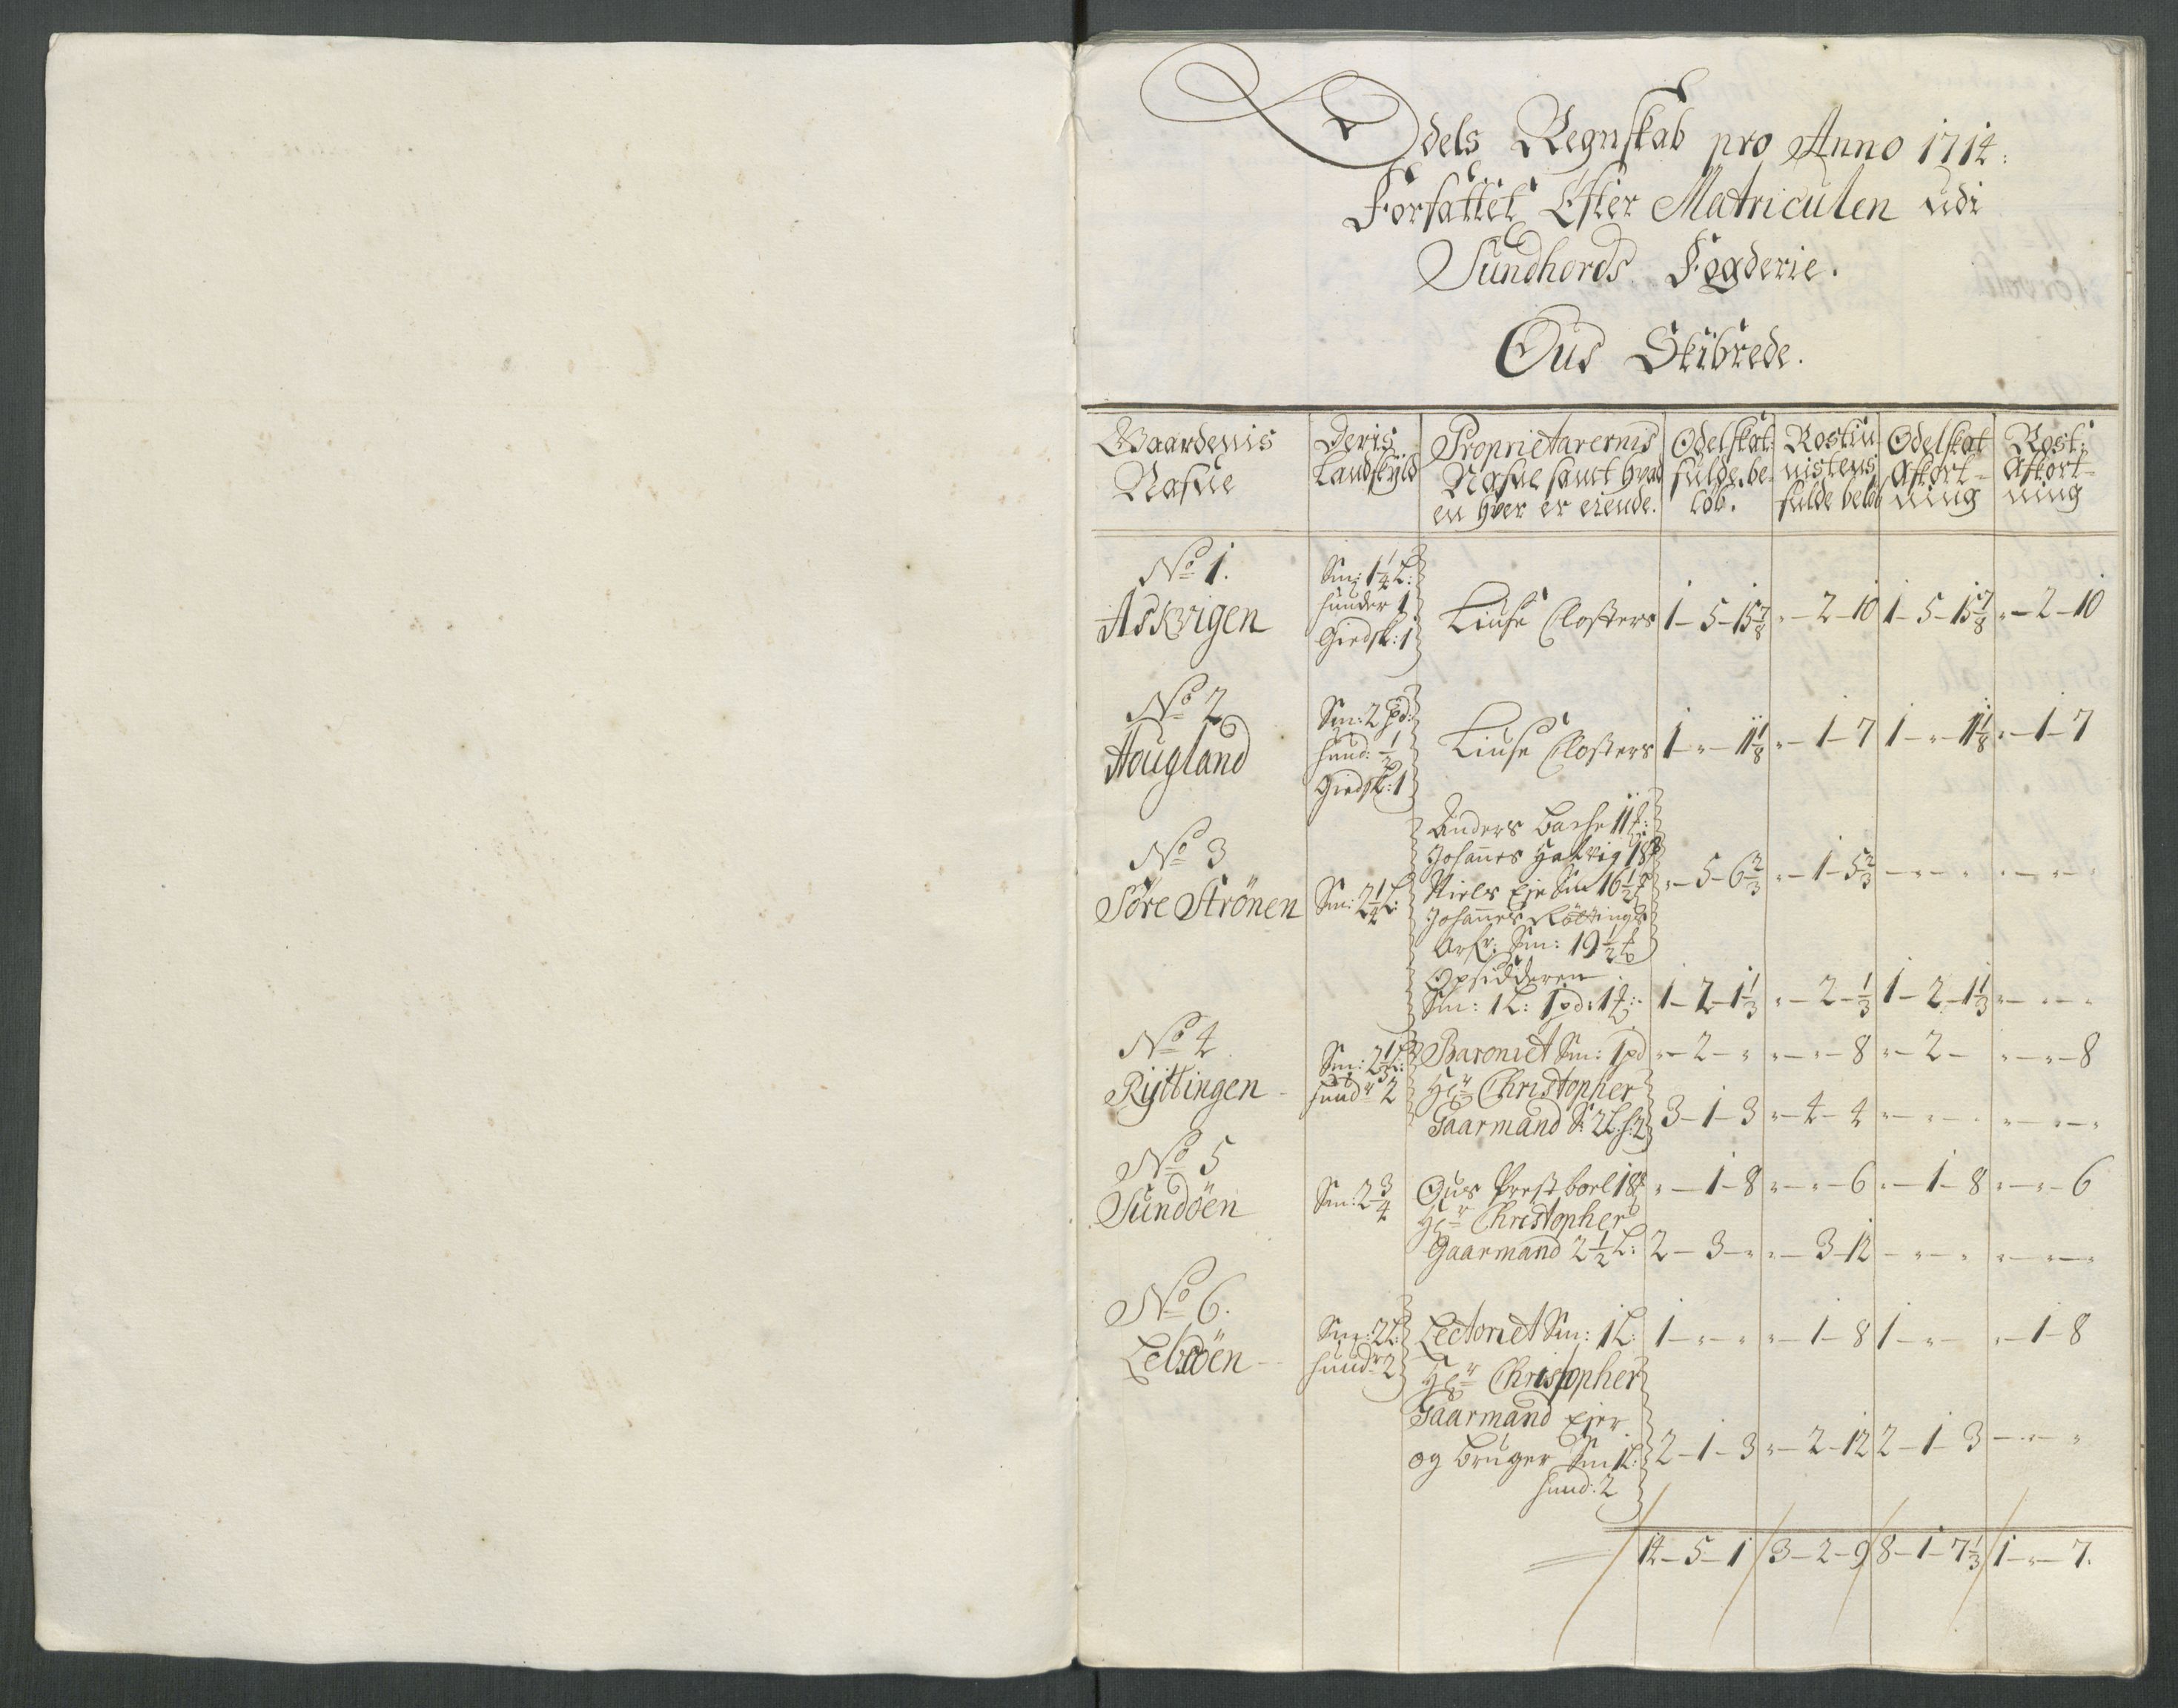 Odels Regnskab pro Anno 1714:
Forfattet Efter Matriculen udi
Sundhords Fogderie.
Ous Skibrede.
Gaardenis Nafne | Deris Landskyld | Proprietarernis Nafne samt hvad en hver er eiende. | Odelskat: fulde be- løb. | Rostie- nistens fulde beløb | Odelskat Afkort- ning | Rost: Afkort- ning
No 1.
Askvigen | Sm: 1 1/4 L: huder 1 Giedsk: 1 | Liuse Closters | 1 - 5 - 15 7/8 | " - 2 - 10 | 1 - 5 - 15 7/8 | " - 2 - 10
No 2
Hougland | Sm: 2 pd: hud: 1/2 Giedsk: 1 | Liuse Closters | 1 - " - 11 1/8 | " - 1 - 7 | 1 - " - 11 1/8 | " - 1 - 7
No 3
Söre Strönen | Sm: 2 1/4 L:
Anders Bache 11
Johannes Hatvig 18
Niels Eje Sm 16 1/2 | " - 5 - 6 2/3 | " - 1 - 5 2/3 | " - " - " | " - " - "
Johannes Röttings
Arf: Sm: 19 1/2
Opsidderen
Sm: 1 L: 1 pd: 1 | 1 - 2 - 1 1/3 | " - 2 - 1/3 | 1 - 2 - 1 1/3 | " - " - "
No 4
Rÿttingen | Sm: 2 1/3 L: hudr 2 | Baroniet Sm: 1 pd | " - 2 - " | " - " - 8 | " - 2 - | " - " - 8
Hr Christopher
Gaarmand S: 2 L: h: 2 | 3 - 1 - 3 | " - 4 - 4 | " - " - " | " - " - "
No 5
Sundöen | Sm: 2 3/4 | Ous Prestboel 18 | " - 1 - 8 | " - " - 6 | " - 1 - 8 | " - " - 6
Hr Christopher
Gaarmand 2 1/2 L: | 2 - 3 - " | " - 3 - 12 | - " - " | " - " - "
No 6.
Lebsöen | Sm: 2 L: hudr 2 | Lectoriet Sm: 1 L: | 1 - " - " | " - 1 - 8 | 1 - " - | " - 1 - 8
Hr Christopher
Gaarmand Ejer
og Bruger Sm 1 L: | 2 - 1 - 3 | " - 2 - 12 | 2 - 1 - 3 | - " - "
hud: 2
14 - 5 - 1 | 3 - 2 - 9 | 8 - 1 - 7 1/3 | 1 - " - 7.